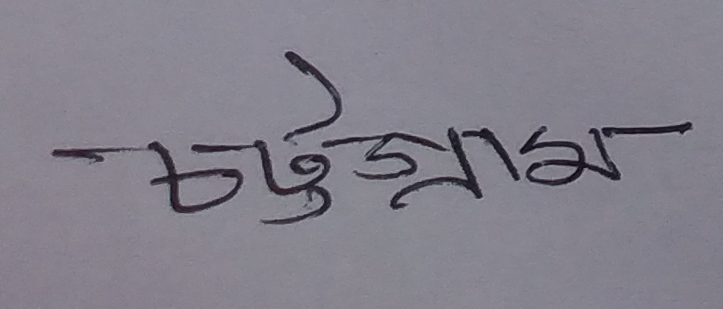 চট্টগ্রাম